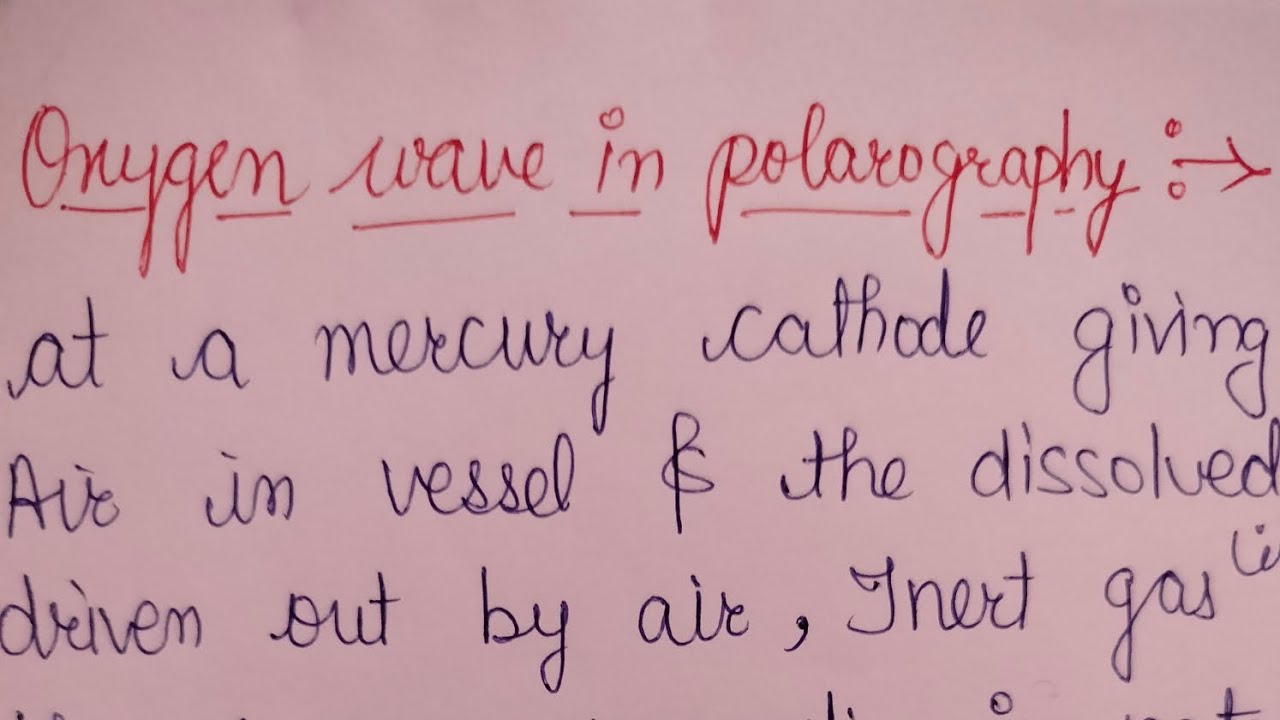 Oxygen wave in polarography :→
at a mercury cathode giving
Air in vessel & the dissolved
driven out by air, Inert gas